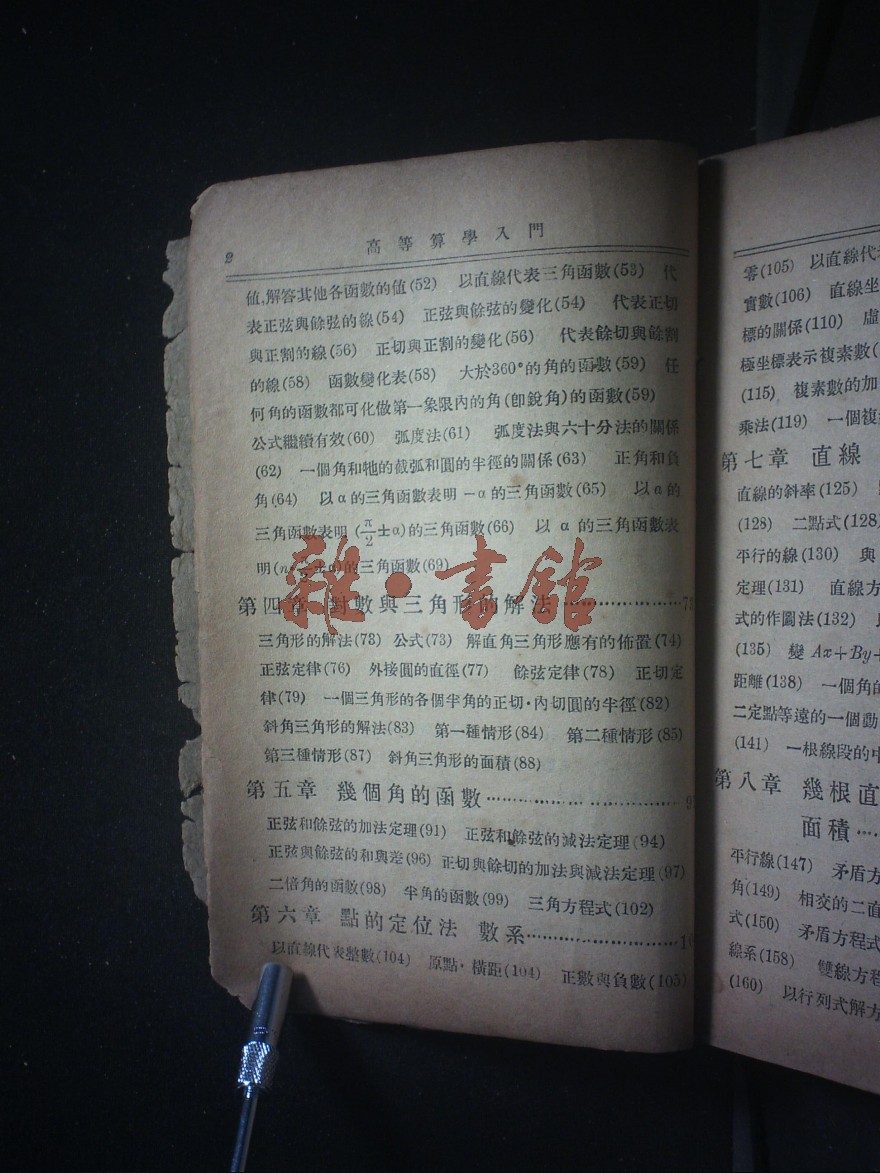 2
高等算學入門
値,解答其他各函數的値(52) 以直線代表三角函數(53) 代
表正弦與餘弦的線(54) 正弦與餘弦的變化(54) 代表正切
與正割的線(56) 正切與正割的變化(56) 代表餘切與餘割
的線(58) 函數變化表(58) 大於360°的角的函數(59) 任
何角的函數都可化做第一象限內的角(卽銳角)的函數(59)
公式繼續有效(60) 弧度法(61) 弧度法與六十分法的關係
(62) 一個角和牠的截弧和圓的半徑的關係(63) 正角和負
角(64) 以α的三角函數表明 −α的三角函數(65) 以α的
三角函數表明 (π/2±α)的三角函數(66) 以 α 的三角函數表
明 的三角函數(69)
第四章 對數與三角形的解法
三角形的解法(73) 公式(73) 解直角三角形應有的佈置(74)
正弦定律(76) 外接圓的直徑(77) 餘弦定律(78) 正切定
律(79) 一個三角形的各個半角的正切·內切圓的半徑(82)
斜角三角形的解法(83) 第一種情形(84) 第二種情形(85)
第三種情形(87) 斜角三角形的面積(88)
第五章 幾個角的函數
正弦和餘弦的加法定理(91) 正弦和餘弦的減法定理(94)
正弦與餘弦的和與差(96) 正切與餘切的加法與減法定理(97)
二倍角的函數(98) 半角的函數(99) 三角方程式(102)
第六章 點的定位法 數系
以直線代表整數(104) 原點·橫距(104) 正數與負數(105)
雜·書館
零(105) 以直線代
實數(106) 直線坐
標的關係(110) 虛
極坐標表示複素數(
(115) 複素數的加
乘法(119) 一個複
第七章 直線
直線的斜率(125)
(128) 二點式(128
平行的線(130) 與
定理(131) 直線方
式的作圖法(132)
(135) 變 Ax+By+
距離(138) 一個角的
二定點等遠的一個動
(141) 一根線段的中
第八章 幾根直
面積
平行線(147) 矛盾方
角(149) 相交的二直
式(150) 矛盾方程式
線系(158) 雙線方程
(160) 以行列式解方